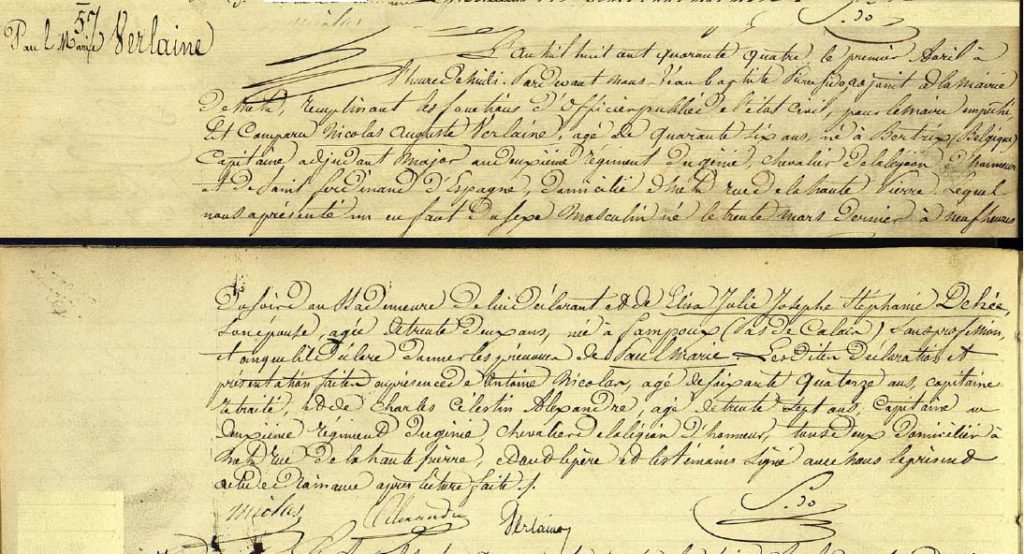 57
Paul Marie Verlaine
L'an mil huit cent quarante quatre, le premier Avril à
l'heure de midi. Pardevant nous Jean Baptiste Pierre Sido, adjoint à la mairie
de Metz, remplissant les fonctions d'Officier public de l'état civil, pour le maire empêché
Est Comparu Nicolas Auguste Verlaine, agé de quarante six ans, né à Bertrix (Belgique)
Capitaine adjudant Major au deuxième régiment du génie, chevalier de la légion d'honneur
et de Saint ferdinand d'Espagne, domicilié à Metz rue de la haute Pierre. Lequel
nous a présenté un enfant du sexe Masculin né le trente mars dernier à neuf heures
Du soir en sa demeure de lui déclarant et de Elisa Julie Josephe Stéphanie Dehée,
Son épouse, agée de trente deux ans, née à fampoux (Pas de Calais) Sans profession,
et auquel il déclare donner les prénoms de Paul Marie. Les dites Déclaration et
présentation faites en présence de Antoine Nicolas, agé de soixante quatorze ans, capitaine
retraité, et de Charles Célestin Alexandre, agé de trente sept ans, Capitaine au
deuxième régiment du génie, chevalier de la légion d'honneur, tous deux domiciliés à
Metz rue de la haute pierre, et ont le père et les témoins signé avec nous le présent
acte de naissance après lecture faite.
Nicolas Alexandre Verlaine Sido